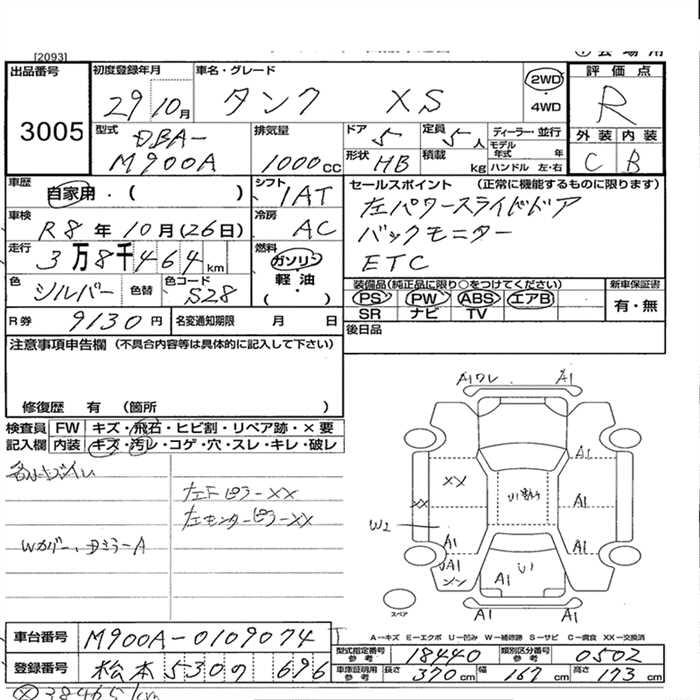 [2093]
出品番号
3005
初度登録年月
29 10月
車名・グレード
タンク XS
2WD
・
4WD
評価点
R
外装 内装
C B
型式
DBA-
M900A
排気量
1000cc
ドア
5
定員
5人
形状
HB
積載
kg
ディーラー・並行
モデル年式 年
ハンドル 左・右
車歴
自家用・( )
シフト
IAT
車検
R8年10月(26日)
冷房
AC
走行
3万8千464km
燃料
ガソリン
軽油
( ・ )
色
シルバー
色替
色コード
S28
R券
9130円
名変通知期限 月 日
セールスポイント (正常に機能するものに限ります)
左パワースライドドア
バックモニター
ETC
装備品(純正品に限り○をつけてください)
PS PW ABS エアB
SR ナビ TV
新車保証書
有・無
後日品
注意事項申告欄(不具合内容等は具体的に記入して下さい)
修復歴 有 (箇所 )
検査員記入欄
FW キズ・飛石・ヒビ割・リペア跡・×要
内装 キズ・汚レ・コゲ・穴・スレ・キレ・破レ
左Fピラーxx
左センターピラーxx
A1ワレ A1
A1
xx
xx
A1
W2
A1
A1
A1
A1
A1
スペア
A1 A1
A―キズ E―エクボ U―凹み W―補修跡 S―サビ C―腐食 XX―交換済
車台番号
M900A-0109074
登録番号
松本 530 696
型式指定番号
参考
18440
類別区分番号
参考
0502
車庫証明用
参考
長さ 370cm
幅 167cm
高さ 173cm